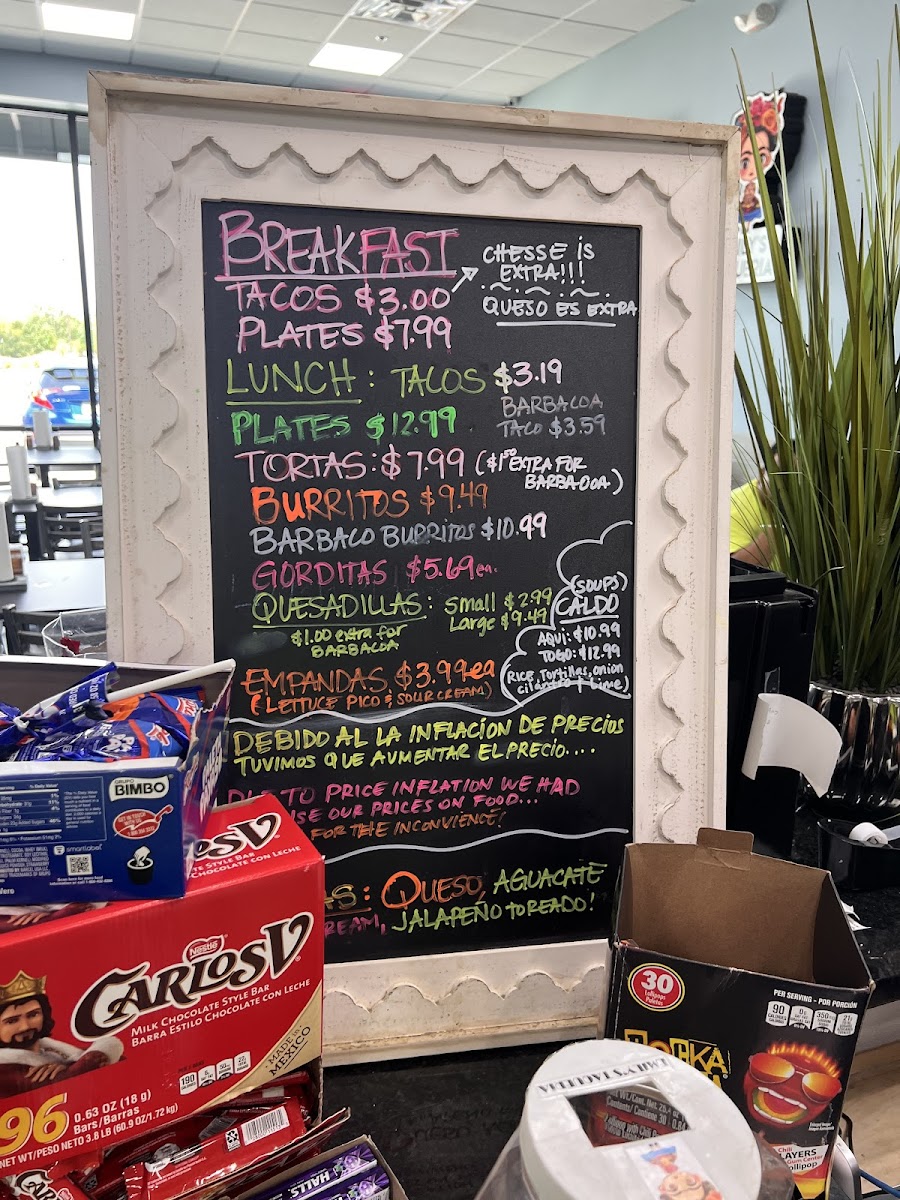 BREAKFAST
CHESSE is EXTRA!!!
QUESO ES EXTRA
TACOS $3.00
PLATES $7.99
LUNCH: TACOS $3.19
BARBACOA
TACO $3.59
PLATES $12.99
TORTAS: $7.99 ($1.50 EXTRA FOR
BARBAOOA)
BURRITOS $9.49
BARBACO BURRITOS $10.99
GORDITAS $5.69 ea.
QUESADILLAS: Small $2.99
Large $9.49
$1.00 extra for
BARBACOA
(SOUPS)
CALDO
AQUi: $10.99
TOGO: $12.99
RICE, Tortillas, onion
cilantro + Lime)
EMPANDAS $3.99 ea
(LETTUCE PICO & SOUR CREAM)
DEBIDO AL LA INFLACION DE PRECIOS
TUVIMOS QUE AUMENTAR EL PRECIO....
DUE TO PRICE INFLATION WE HAD
ISE OUR PRICES ON FOOD...
FOR THE INCONVIENCE!
AS: QUESO, AGUACATE
REAM, JALAPEÑO TOREADO!
GRUPO
BIMBO
smartlabel
OSV
TE STYLE BAR
CHOCOLATE CON LECHE
Nestlé
CARLOS V
MILK CHOCOLATE STYLE BAR
BARRA ESTILO CHOCOLATE CON LECHE
MADE in
MEXICO
190
96
0.63 OZ (18 g)
Bars/Barras
NET WT/PESO NETO 3.8 LB (60.9 OZ/1.72 kg)
CARLOS V
HALLS
30
Lollipops
Paletas
PER SERVING - POR PORCIÓN
90
0g
350mg
21g
KA
Chili
LAYERS
Gum Center
Lollipop